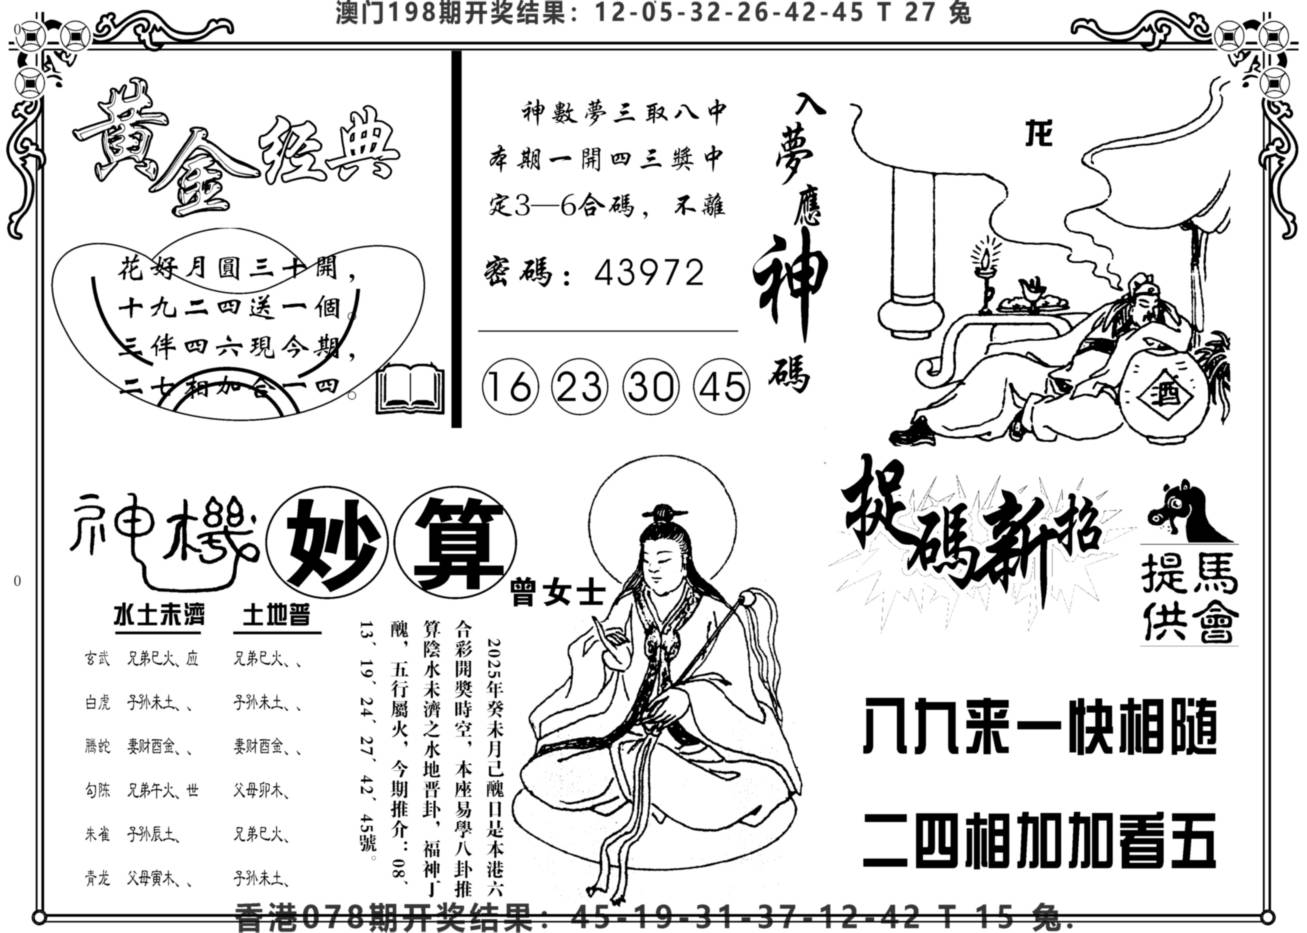 澳门198期开奖结果：12-05-32-26-42-45 T 27 兔
黄金经典
花好月圓三十開，
十九二四送一個。
三伴四六現今期，
二七相加合一四。
神數夢三取八中
本期一開四三獎中
定3—6合碼，不離
密碼：43972
16 23 30 45
入夢應神碼
龙
酒
神機妙算
曾女士
水土未濟 土地普
玄武 兄弟巳火、应 兄弟巳火、、
白虎 子孙未土、、 子孙未土、、
騰蛇 妻财酉金、、 妻财酉金、、
勾陈 兄弟午火、世 父母卯木、
朱雀 子孙辰土、 兄弟巳火、
青龙 父母寅木、、 子孙未土、
2025年癸未月己醜日是本港六
合彩開獎時空，本座易學八卦推
算陰水未濟之水地晋卦，福神丁
醜，五行屬火，今期推介：08、
13、19、24、27、42、45號。
捉碼新招
馬會
提供
八九来一快相随
二四相加加看五
香港078期开奖结果：45-19-31-37-12-42 T 15 兔.
0
0